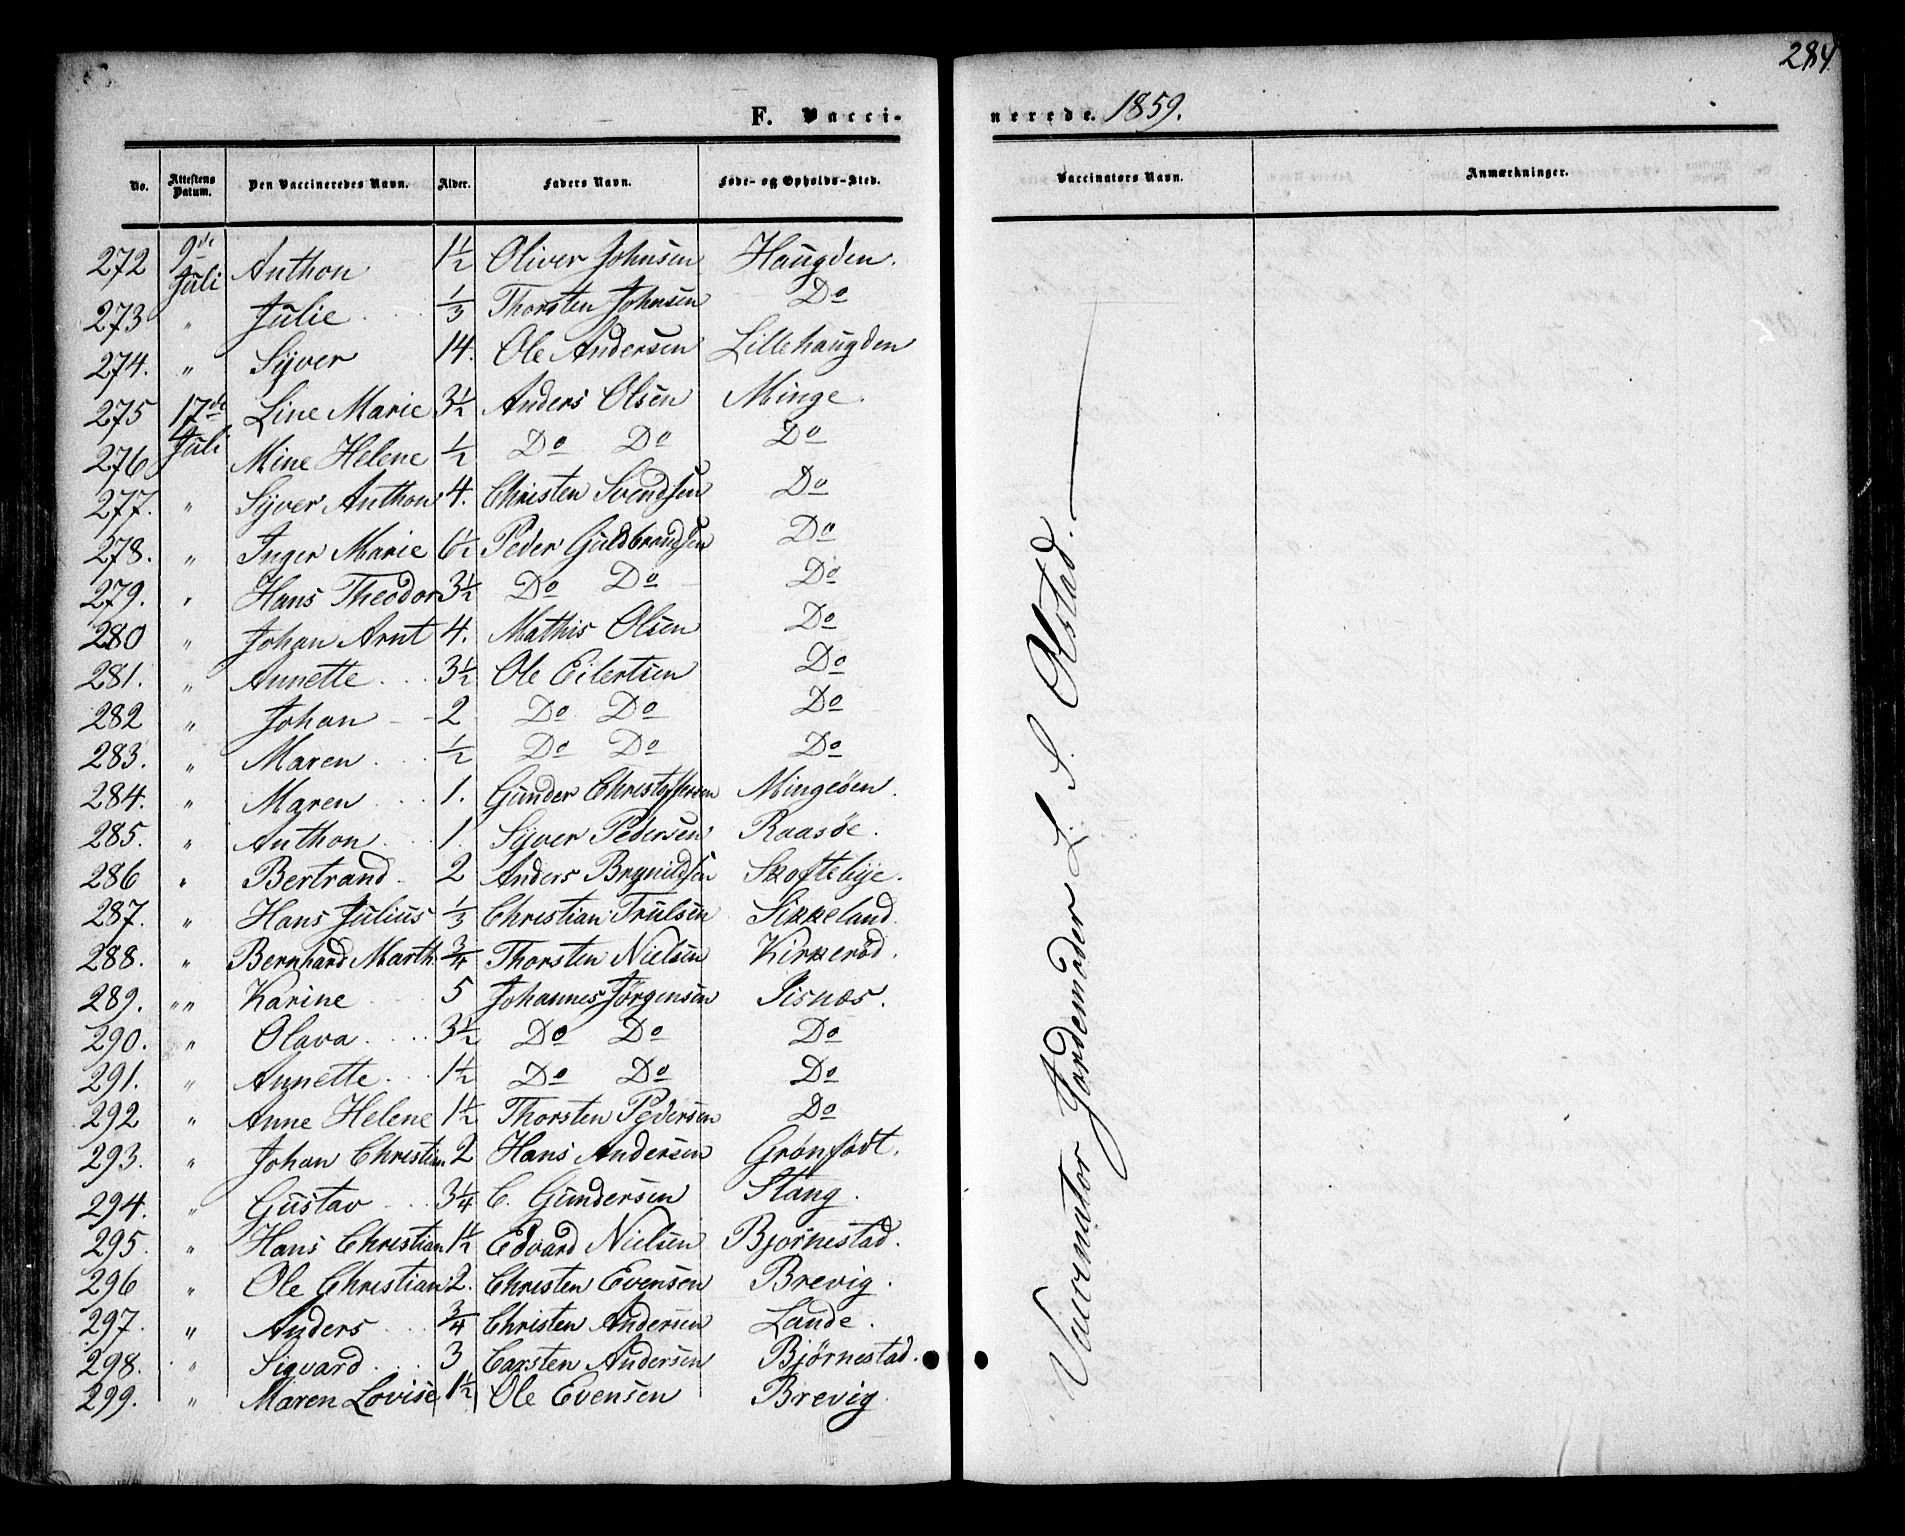 284
F. Vacci-
nerede. 1859.
No. Attestens Datum. Den Vaccineredes Navn. Alder. Faders Navn. Føde- og Opholds-Sted. Vaccinators Navn. Anmærkninger.
272 9de Juli Anthon 1½ Oliver Johnsen Haugden.
273 " Julie 1/3 Thorsten Johnsen Do
274. " Syver 14. Ole Andersen Lillehaugden
275 17de Juli Line Marie 3½ Anders Olsen Minge.
276 Mine Helene ½ Do Do Do
277. " Syver Anthon 4. Christen Svendsen Do
278. " Inger Marie 6½ Peder Guldbrandsen Do
279. " Hans Theodor 3½ Do Do Do
280 " Johan Arnt 4. Mathis Olsen Do
281. " Annette 3½ Ole Eilertsen Do
282 " Johan 2 Do Do Do
283. " Maren ½ Do Do Do
284. " Maren 1. Gunder Christoffersen Mingeöen.
285. " Anthon 1. Syver Pedersen Raasöe.
286 " Bertrand 2 Anders Brynildsen Skoftebye.
287. " Hans Julius 1/3 Christian Trulsen Sikkeland
288. " Bernhard Marth. 3/4 Thorsten Nielsen Kirkeröd.
289. " " Karine 5 Johannes Jörgensen Pisnæs.
290. " Olava 3½ Do Do Do
291. " Annette 1½ Do Do Do
292 " Anne Helene 1½ Thorsten Pedersen Do
293. " Johan Christian 2 Hans Andersen Grönfödt.
294. " Gustav 3¼ C. Gundersen Stang.
295. " Hans Christian 1½ Edvard Nielsen Bjornestad.
296 " Ole Christian 2. Christen Evensen Brevig.
297. " Anders 3/4 Christen Andersen Lande.
298. " Sigvard 3 Carsten Andersen Bjørnestad.
299. " Maren Lovise 1½ Ole Evensen Brevig
Vaccinator Jordemoder L. S. Olstad.